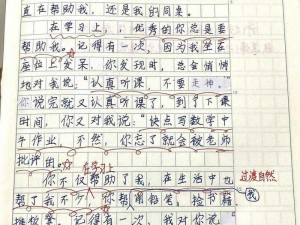 直在帮助我，还是我的同桌。
在学习上，优秀的你总是要
帮助我。记得有一次，因为我坐在
座位上发呆，你发现时，总会悄悄
地对我说："认真听课，不要走神。"
你说完就又认真听课了，到了下课
时间，你又对我说："快点写数学中
午作业，不然，你忘了就会被老师
批评的。"
在学习上
你不仅帮助了我，在生活中也
过渡自然
帮了我不少，你帮
我
削铅笔，捡书籍
记得有一次，我对你说